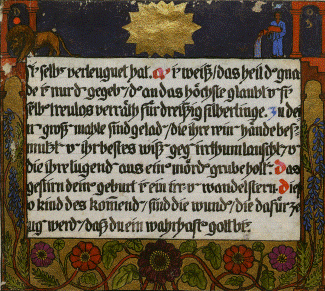 si selbs verleugnet hat. a ir weiß/das heil d' gna
de ir nur d' gegeb'/ d' an das höchste glaubt v' si
selbs treulos verräth für dreißig silberlinge.
v' groß mahle sind gelad'/die ihre rein' hände bes-
mutzt' v' ihr bestes wiß geg' irrthum lauscht' v'
die ihre tugend aus ein' mörd'grube holt'. das
gestirn dein' geburt ist ein irr- v' wandelstern. die
o kind des komend'/ sind die wund'/ die dafür ze
ug' werd'/ daß du ein wahrhaft' gott bi'.